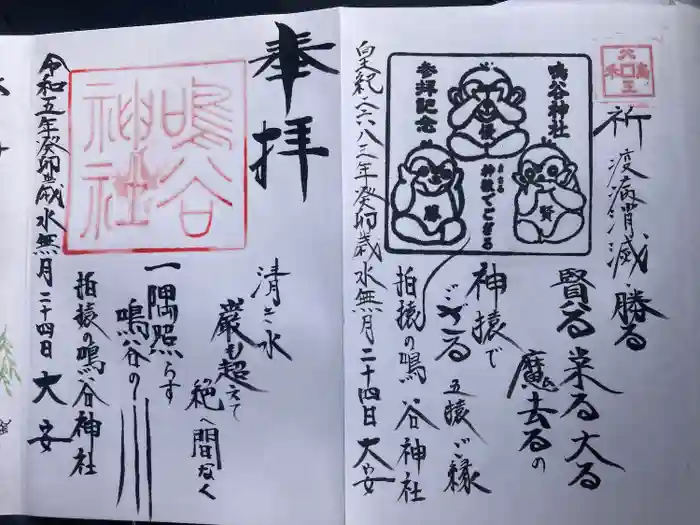 祈
疫病消滅 勝る
賢る 栄る 大る
魔去るの
神猿で
ござる 五猿ご縁
拍猿の鳴谷神社
皇紀二六八三年癸卯歳水無月二十四日 大安
鳴谷神社
参拝記念
神猿でござる
優
賢
奉拝
鳴谷神社
清き水
巌も超えて
絶へ間なく
一隅照らす
鳴谷の川
拍猿の鳴谷神社
令和五年癸卯歳水無月二十四日 大安